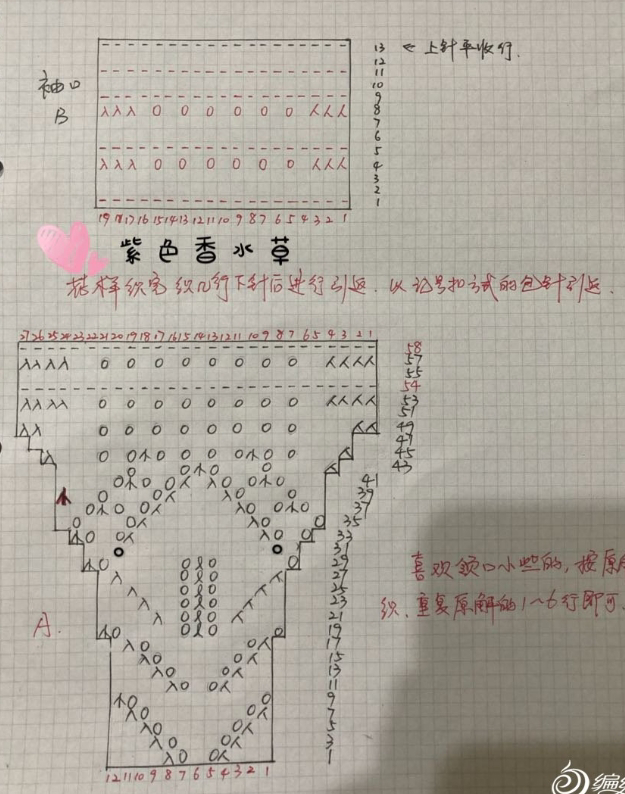 13 ← 上针平收行.
12
11
10
9
8
7
6
5
4
3
2
1
袖口
B
19 18 17 16 15 14 13 12 11 10 9 8 7 6 5 4 3 2 1
紫色香水草
花样织完织几行下针后进行引返. 以记号扣方式的包针引返.
27 26 25 24 23 22 21 20 19 18 17 16 15 14 13 12 11 10 9 8 7 6 5 4 3 2 1
58
57
55
54
53
51
49
47
45
43
41
39
37
35
33
31
29
27
25
23
21
19
17
15
13
11
9
7
5
3
1
喜欢领口小些的, 按原
织. 重复原解的1~6行即可
A.
12 11 10 9 8 7 6 5 4 3 2 1
编